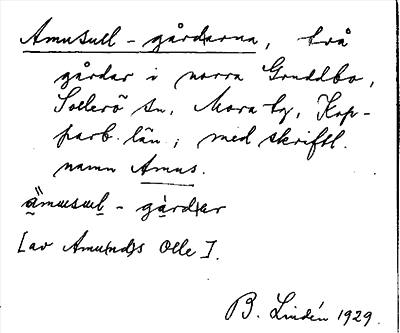 Amusull-gårdarna, två
gårdar i norra Gruddbo,
Sollerö sn, Mora tg, Kop-
parb. län; med skriftl.
namn Amus.
ä̀musul - gàrdær
[av Amu(nd)s Olle].
B. Lindén 1929.